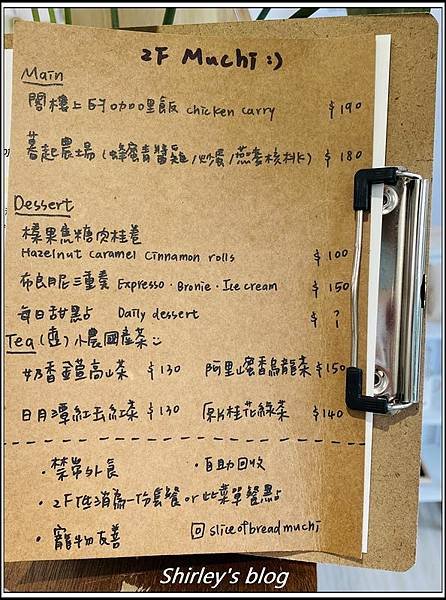 2F Muchi :)
Main
閣樓上的咖哩飯 chicken carry $190
暮起農場 (蜂蜜青醬雞/炒蛋/燕麥核桃K) $180
Dessert
榛果焦糖肉桂卷
Hazelnut caramel cinnamon rolls $100
布朗尼三重奏 Expresso · Bronie · Ice cream $150
每日甜點 Daily dessert $ ?
Tea (壺) 小農國產茶
奶香金萱高山茶 $130 阿里山蜜香烏龍茶 $150
日月潭紅玉紅茶 $130 原片桂花綠茶 $140
· 禁帶外食 · 自助回收
· 2F低消為一份套餐 or 此菜單餐點
· 寵物友善 sliceofbreadmuchi
Shirley's blog